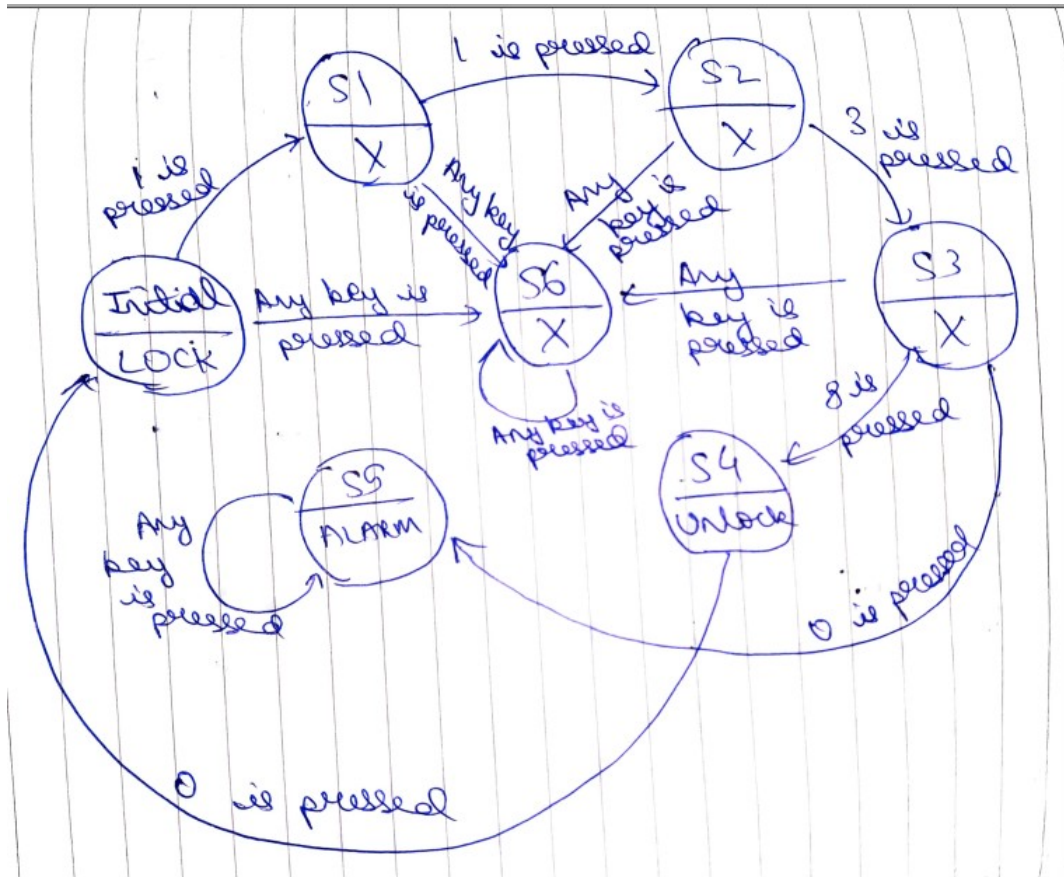 1 is pressed
S1
X
S2
X
3 is
pressed
1 is
pressed
Any key
is pressed
Any
key is
pressed
Initial
LOCK
Any key is
pressed
S6
X
Any
key is
pressed
S3
X
Any key is
pressed
8 is
pressed
S4
UNLock
S5
ALARM
Any
key
is
pressed
0 is pressed
0 is pressed